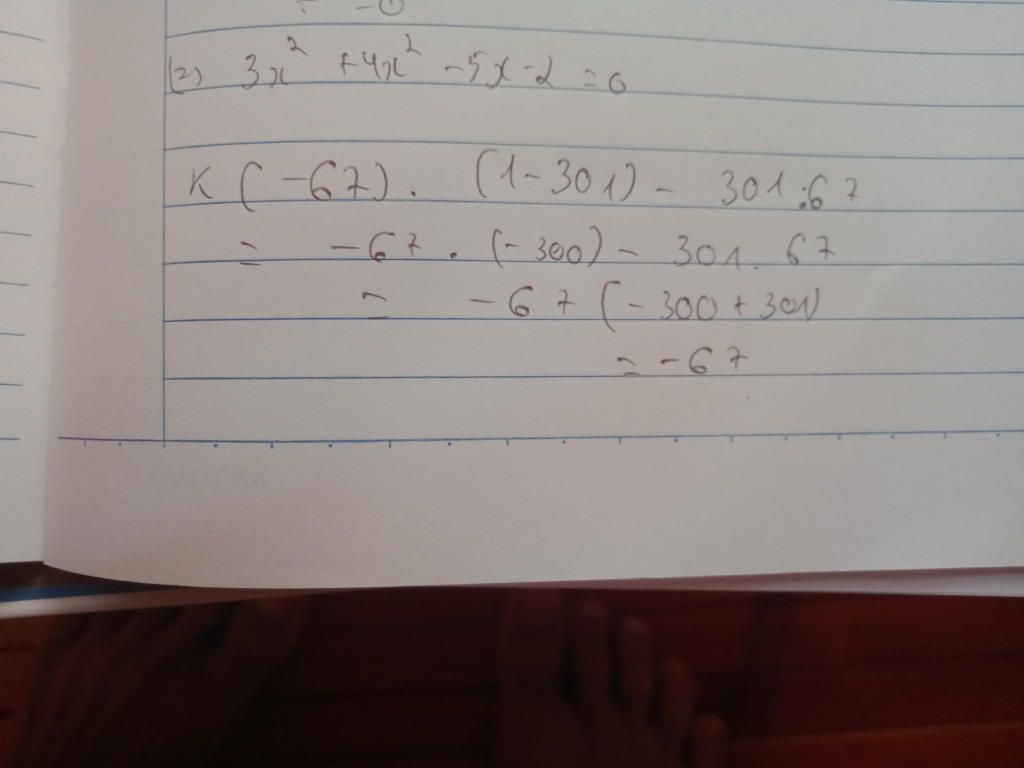 (2) 3x² + 4x² - 5x - 2 = 0
K (-67) . (1 - 301) - 301 : 67
= -67 . (-300) - 301 . 67
= -67 (-300 + 301)
= -67